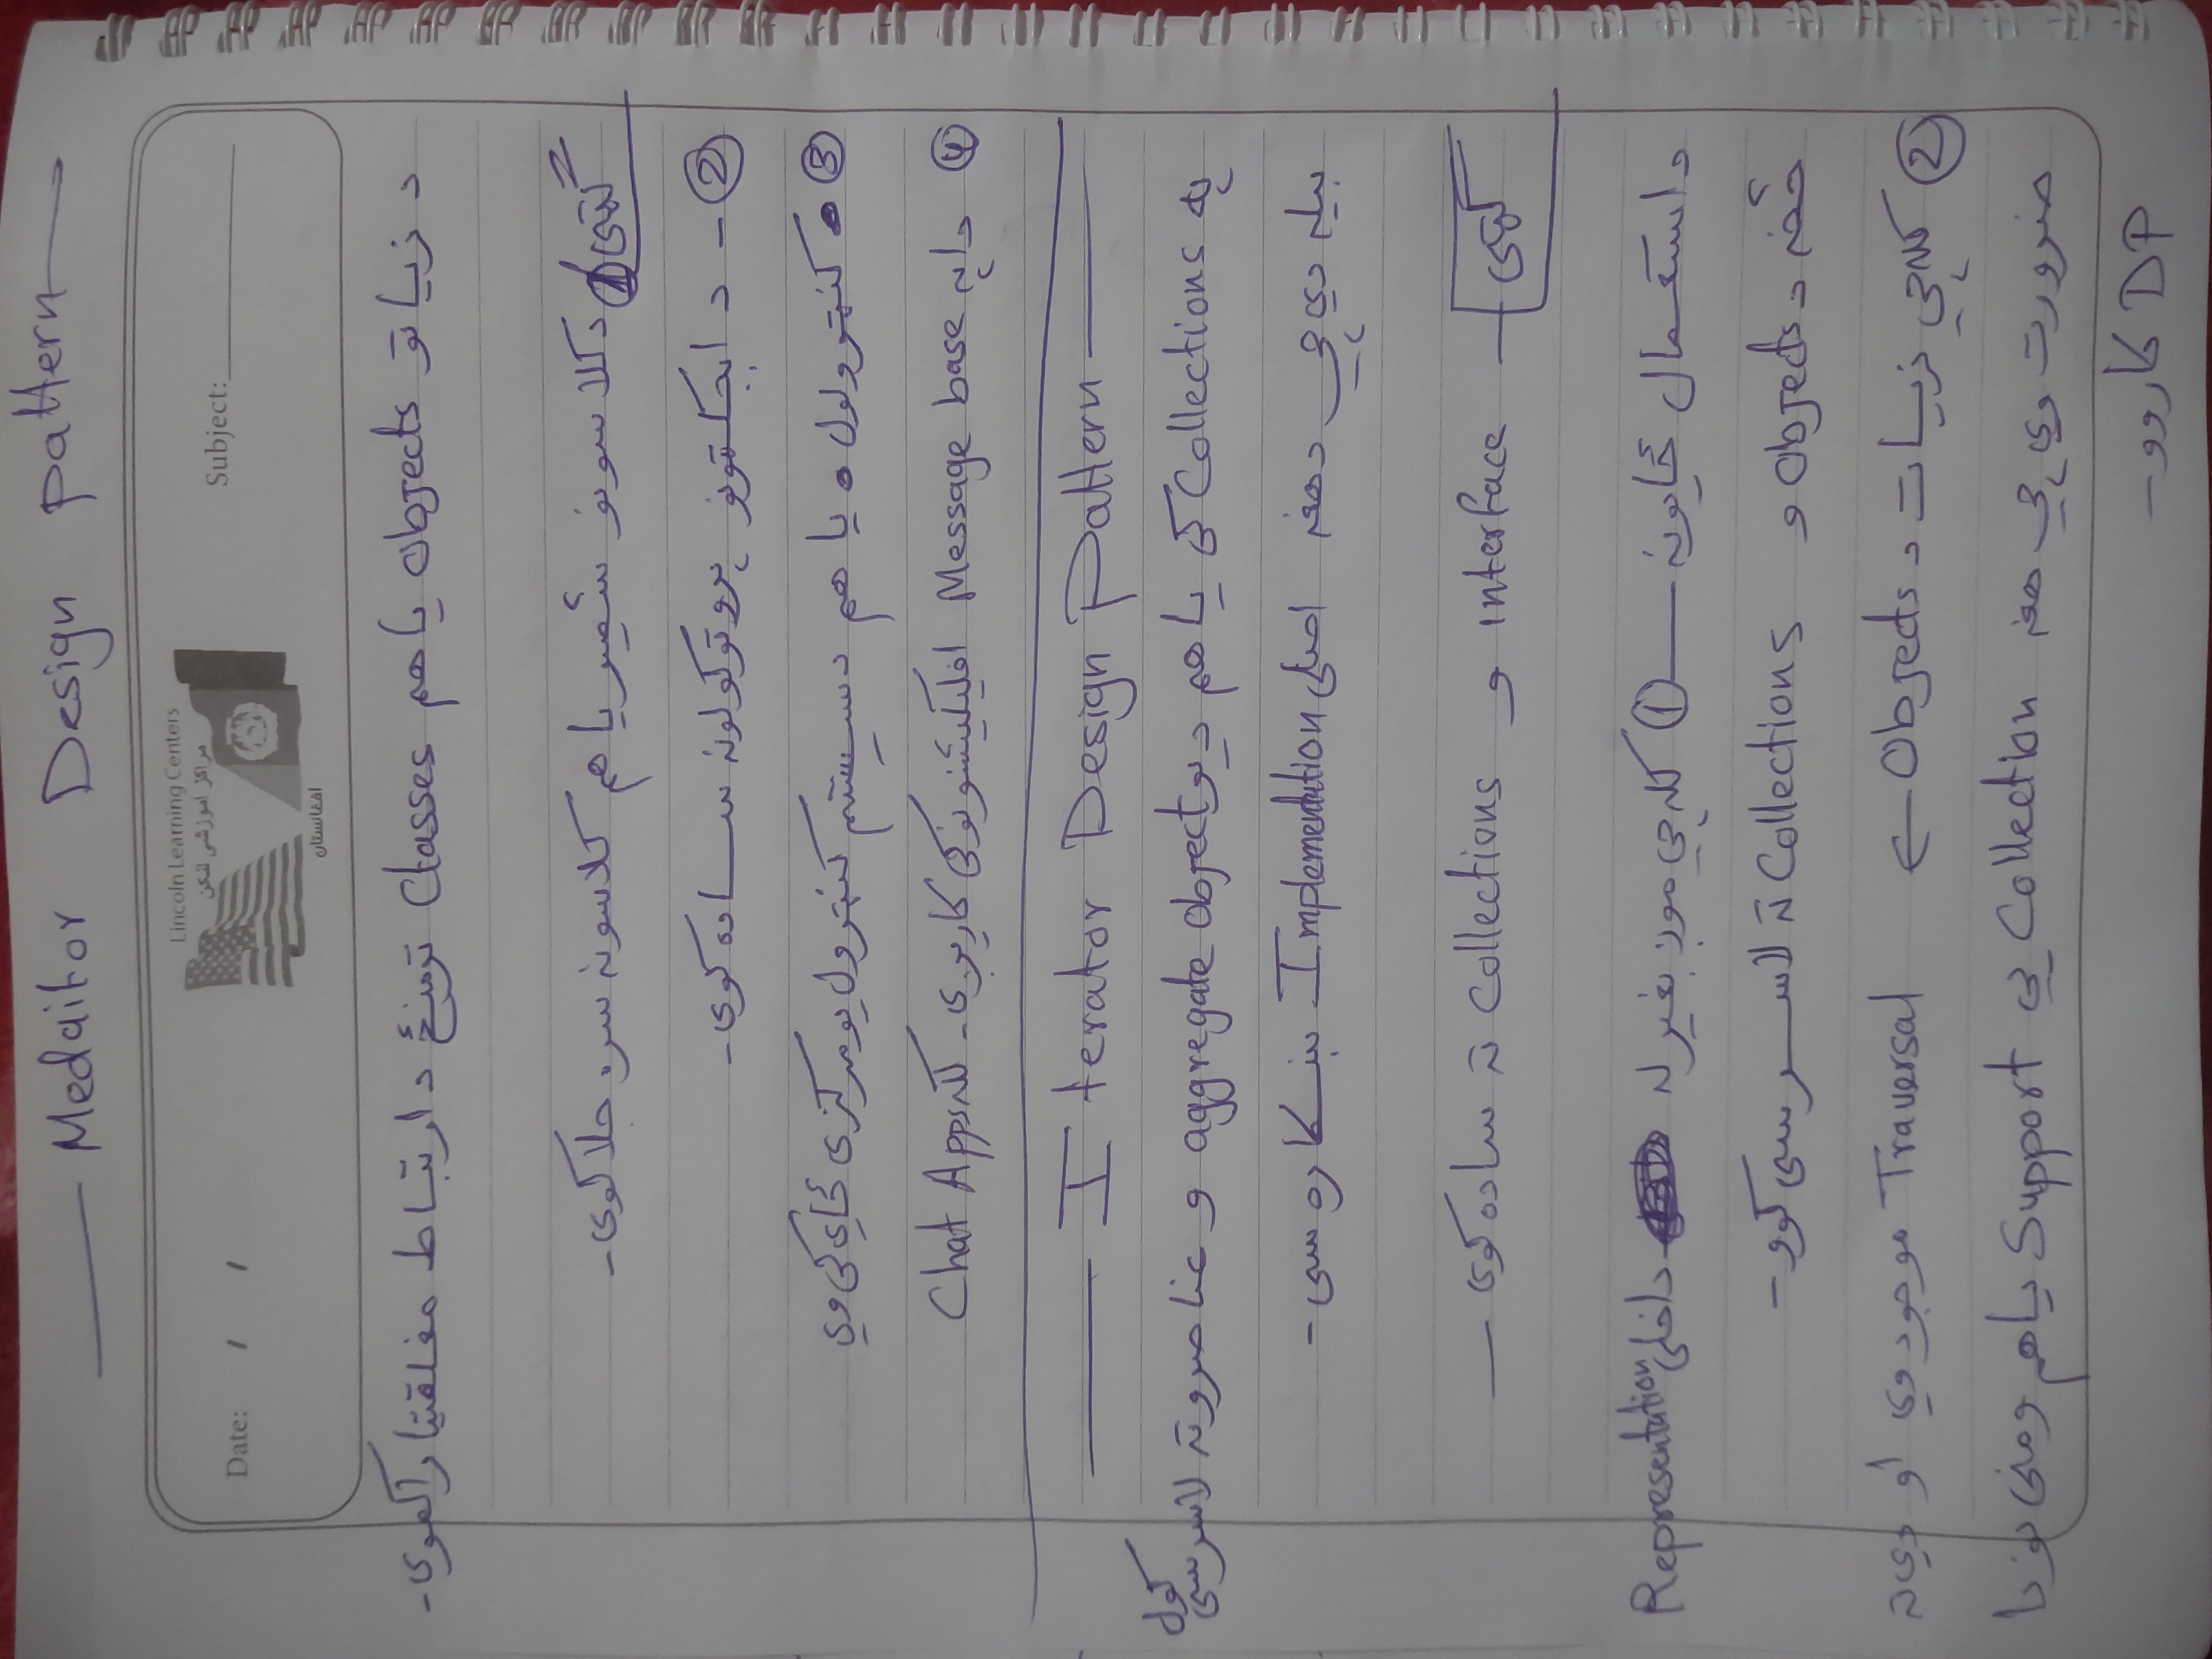 Medaitor Design pattern
Lincoln Learning Centers
مراکز آموزشی لنکن
Date: / /
Subject:
افغانستان
د زیاتو Objects یا هم Classes ترمنځ د ارتباط راکموی۔
ګټی ① د کلاسونو شمیر یا هم کلاسونه سره جلا کوی۔
② - د ابجکټونو پروتوکولونه ساده کوی۔
③ کنټرولول یا هم د سیستم کنټرول یو مرکزی ځای کی وي
④ دا په Message base افلیکیشنونو کی کاریږی۔ لکه Chat Apps
Iterator Design Pattern
په Collections کی یا هم د یو aggregate object و عناصرو ته لاسرسی کول
بیله دې چې د هغه اصلی Implementation ښکاره سی۔
ګټی - Interface و Collections ته ساده کوی
د استعمال ځایونه — ① کله چې موږ بغیر له داخلی Representation
څخه د Objects و Collections ته لاسرسی کوو۔
② کله چې زیات د Objects ← Traversal موجود وي او دې ته
ضرورت وي چې هغه Collection یې Support یا هم ومنی نو دا
DP کاروو۔